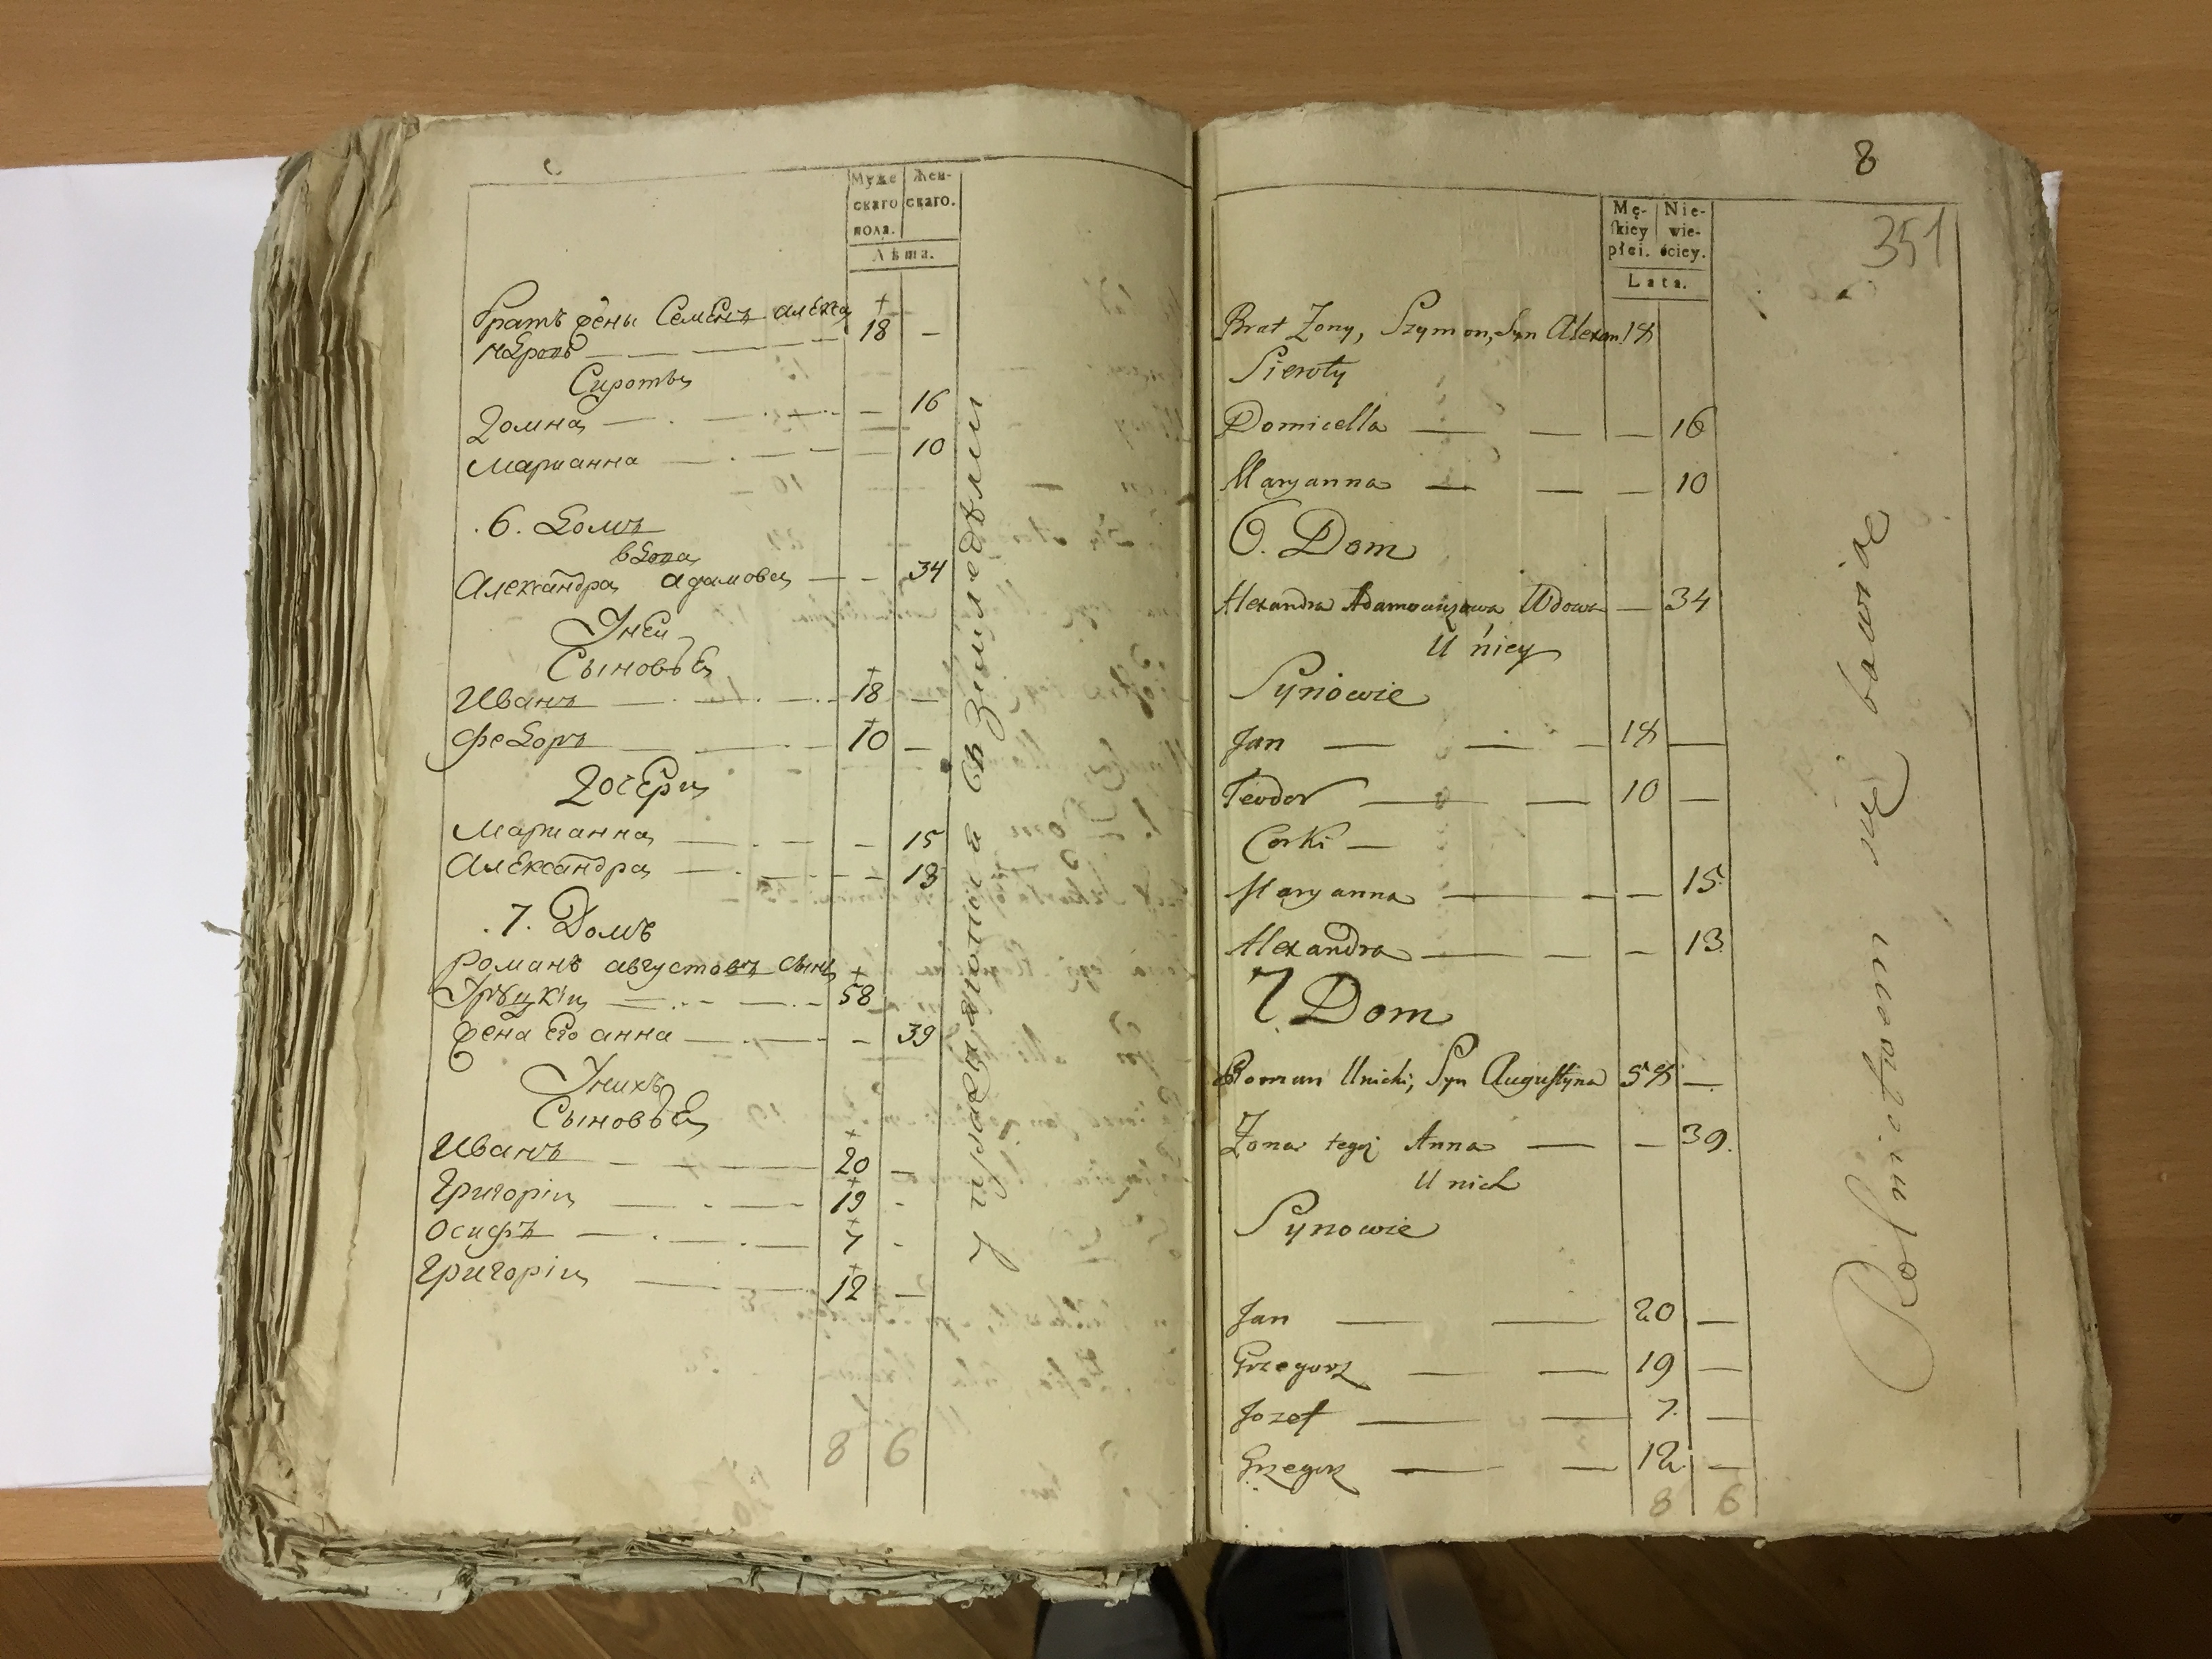 Муже
скаго
пола.
Жен-
скаго.
Лѣта.
братъ жены Семенъ алекса
ндровъ 18 —
Сироты
Домна — 16
Марианна — 10
6. Домъ
вдова
Александра адамова — 34
У неи
Сыновья
Иванъ 18 —
Федоръ 10 —
Дочери
Марианна — 15
Александра — 13
7. Домъ
Романъ августовъ сынъ
58
жена его анна — 39
У нихъ
Сыновья
Иванъ 20 —
Григоріи 19 -
Осифъ 7 -
Григоріи 12 —
8 6
8
351
Mę-
ſkiey
płci.
Nie-
wie-
ściey.
Lata.
Brat Zony, Szymon, Syn Alexan. 18
Sieroty
Domicella — — — 16
Maryanna — — — 10
6. Dom
Alexandra Adamowiczowa Wdowa — 34
U niey
Synowie
Jan — — — 18 —
Teodor — — 10 —
Corki —
Maryanna — - — 15
Alexandra — — — 13
7. Dom
Roman Unicki, Syn Augustyna 58 —
Zona tegoż Anna — — 39.
U nich
Synowie
Jan — — 20 —
Grzegorz — — 19 —
Jozef — — 7. —
Grzegorz — — 12 —
8 6
Rolnictwem się bawiące